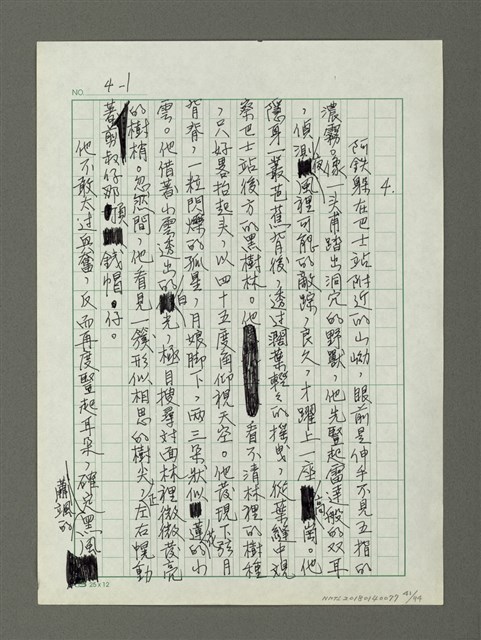 NO. 4-1
4.
阿鉄躲在巴士站附近的山坳,眼前是伸手不見五指的
濃霧。像一头甫踏出洞穴的野獸,他先豎起雷達般的双耳
,偵測夜風裡可能的敵踪,良久,才躍上一座高崗。他
隱身一叢芭蕉背後,透过濶葉輕輕的搖曳,從葉縫中窺
察巴士站後方的黑樹林。他看不清林裡的樹種
,只好畧抬起头,以四十五度角仰視天空。他发現下弦月
背脊,一粒閃爍的孤星,月娘脚下,两三朵狀似蓮的小
雲。他借著小雲透出的白光,極目搜尋对面林裡微微发亮
的樹梢。忽然間,他看見一簇形似相思的樹尖,正左右幌動
著前叔仔那頂錢帽仔。
他不敢太过兴奮,反而再度豎起耳朵,確定黑風
蕭颯的
25x12
NMTL20180140077 41/44